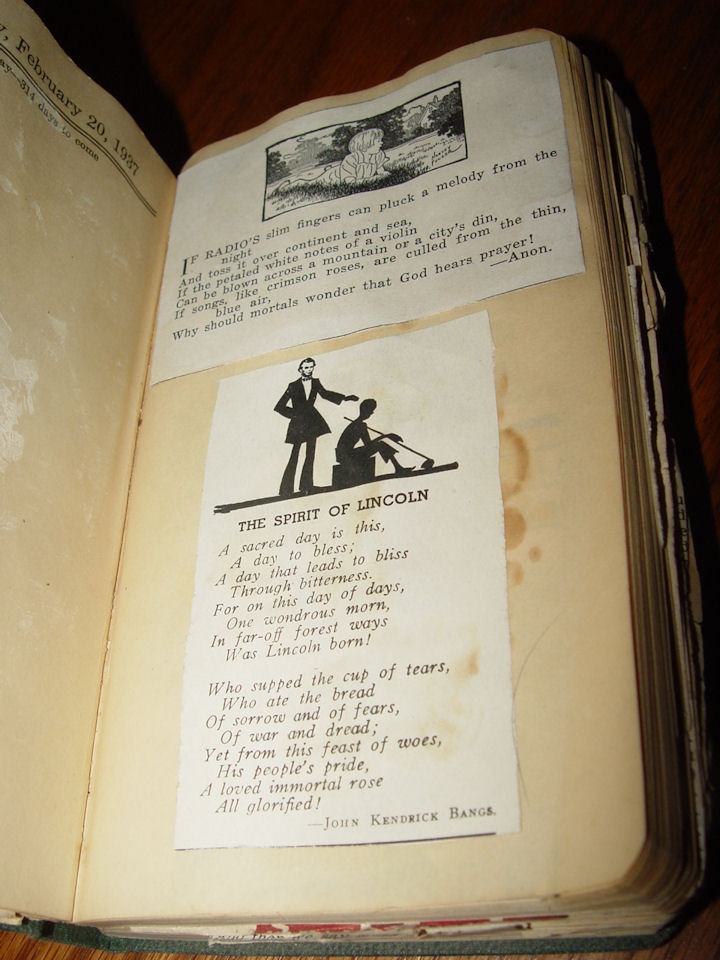 y, February 20, 1937
ay—314 days to come
IF RADIO'S slim fingers can pluck a melody from the
night
And toss it over continent and sea,
If the petaled white notes of a violin
Can be blown across a mountain or a city's din,
If songs, like crimson roses, are culled from the thin,
blue air,
Why should mortals wonder that God hears prayer!
—Anon.
THE SPIRIT OF LINCOLN
A sacred day is this,
A day to bless;
A day that leads to bliss
Through bitterness.
For on this day of days,
One wondrous morn,
In far-off forest ways
Was Lincoln born!
Who supped the cup of tears,
Who ate the bread
Of sorrow and of fears,
Of war and dread;
Yet from this feast of woes,
His people's pride,
A loved immortal rose
All glorified!
—JOHN KENDRICK BANGS.